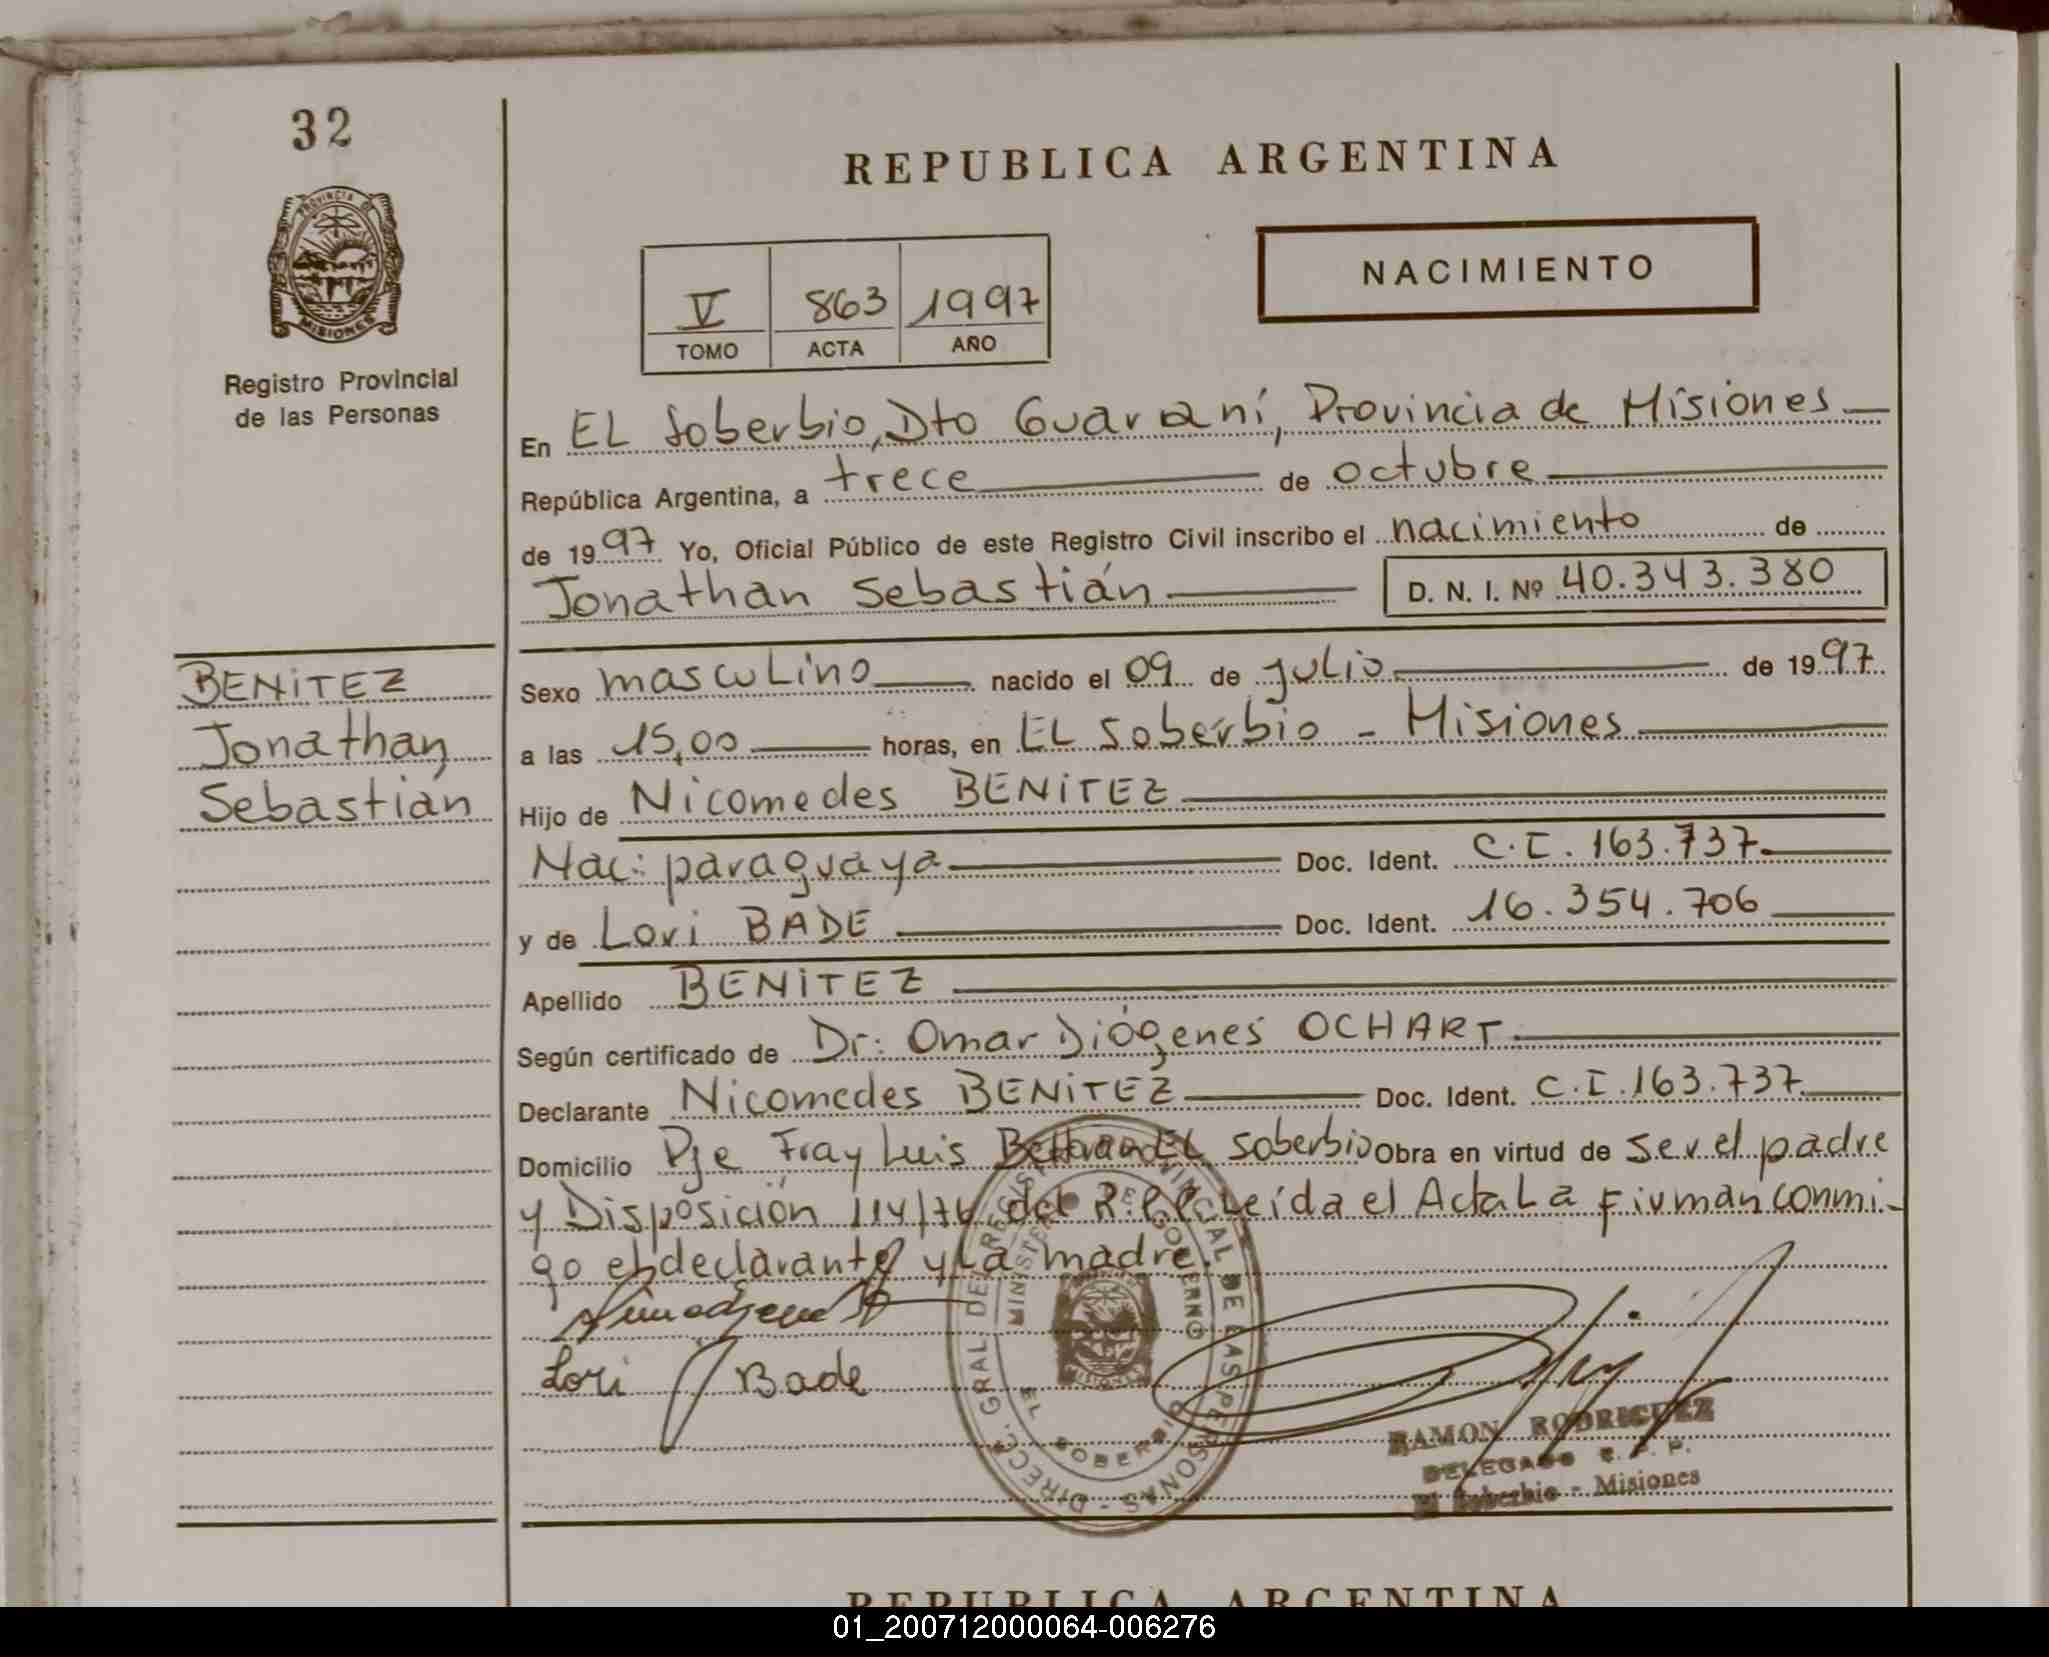 32
PROVINCIA DE
MISIONES
Registro Provincial
de las Personas
BENITEZ
Jonathan
Sebastián
REPUBLICA ARGENTINA
NACIMIENTO
V 863 1997
TOMO ACTA AÑO
En EL Soberbio, Dto Guaraní, Provincia de Misiones
República Argentina, a trece de octubre
de 1997 Yo, Oficial Público de este Registro Civil inscribo el nacimiento de
Jonathan Sebastián D. N. I. Nº 40.343.380
Sexo masculino nacido el 09 de julio de 1997
a las 15,00 horas, en EL Soberbio - Misiones
Hijo de Nicomedes BENITEZ
Nac: paraguaya Doc. Ident. C.I. 163.737
y de Lori BADE Doc. Ident. 16.354.706
Apellido BENITEZ
Según certificado de Dr: Omar Diógenes OCHART
Declarante Nicomedes BENITEZ Doc. Ident. C.I. 163.737
Domicilio Pje Fray Luis Beltran EL Soberbio Obra en virtud de ser el padre
y Disposición 114/76 del R.P.P. Leída el Acta La firman conmi-
go el declarante y La madre.
Lori Bade
DIRECC. GRAL DE REGISTRO PROVINCIAL DE LAS PERSONAS -
MINISTERIO DE GOBIERNO
EL SOBERBIO
MISIONES
RAMON RODRIGUEZ
DELEGADO R. P. P.
El Soberbio - Misiones
REPUBLICA ARGENTINA
01_200712000064-006276